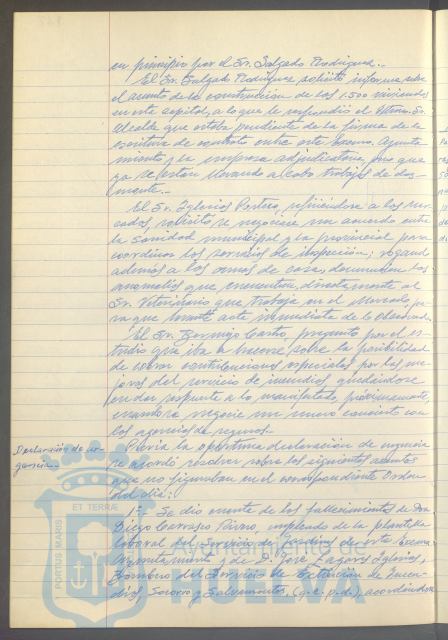 en principio por el Sr. Salgado Rodriguez.-
El Sr. Salgado Rodriguez solicitó informe sobre
el asunto de la construcción de las 1.500 viviendas
en esta capital, a lo que le respondió el Iltmo. Sr.
Alcalde que estaba pendiente de la firma de la
escritura de contrato entre este Excmo. Ayunta-
miento y la empresa adjudicataria, pero que
ya se están llevando a cabo trabajos de
mente.-
El Sr. Iglesias Portero, refiriéndose a los mer-
cados, solicitó se negociase un acuerdo entre
la sanidad municipal y la provincial para
coordinar los servicios de inspección; rogando
además a las amas de casa, denuncien las
anomalías que encuentren, directamente al
Sr. Veterinario que trabaja en el Mercado, pa-
ra que levante acta inmediata de lo observado.
El Sr. Bermejo Castro, preguntó por el es-
tudio que iba a hacerse sobre la posibilidad
de contribuciones especiales por las me-
joras del servicio de incendios, quedándose
en dar respuesta a lo manifestado, próximamente,
cuando se negocie un nuevo concierto con
las agencias de seguros.-
Declaración de ur-
gencia.-
Previa la oportuna declaración de urgencia
se acordó resolver sobre los siguientes asuntos
que no figuraban en el correspondiente Orden
del día:
1º- Se dio cuenta de los fallecimientos de Don
Diego Carrasco, empleado de la plantilla
laboral del Servicio de Jardines de este Excmo.
Ayuntamiento y de D. José Lazaro Iglesias,
Bombero del Servicio de Extinción de Incen-
dios, Socorro y Salvamentos, (q.e.p.d.), acordándose
PORTUS MARIS ET TERRAE
Ayuntamiento de
HUELVA